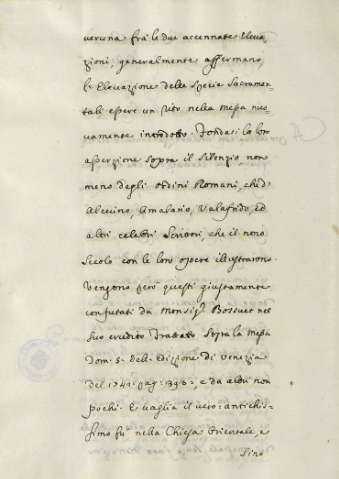 veruna frà le due accennate elevaz
zioni, generalmente affermano,
le Elevazione delle Specie Sacramen-
tali essere un rito nella Messa nuo-
vamente introdotto. Fondasi la loro
asserzione sopra il silenzio non
meno degli Ordini Romani, ched
Alcuino, Amalario, Valafrido, ed
altri celebri Scrittori, che il nono
Secolo con le loro opere illustrarono.
Vengono però questi giustamente
confutati da Monsig.r Bossuet nel
suo erudito Trattato sopra la Messa
Tom. 5. dell'Edizione di Venezia
del 1741. pag: 393: e da altri non
pochi. E vaglia il vero: antichis-
simo fù nella Chiesa Orientale, e
sino